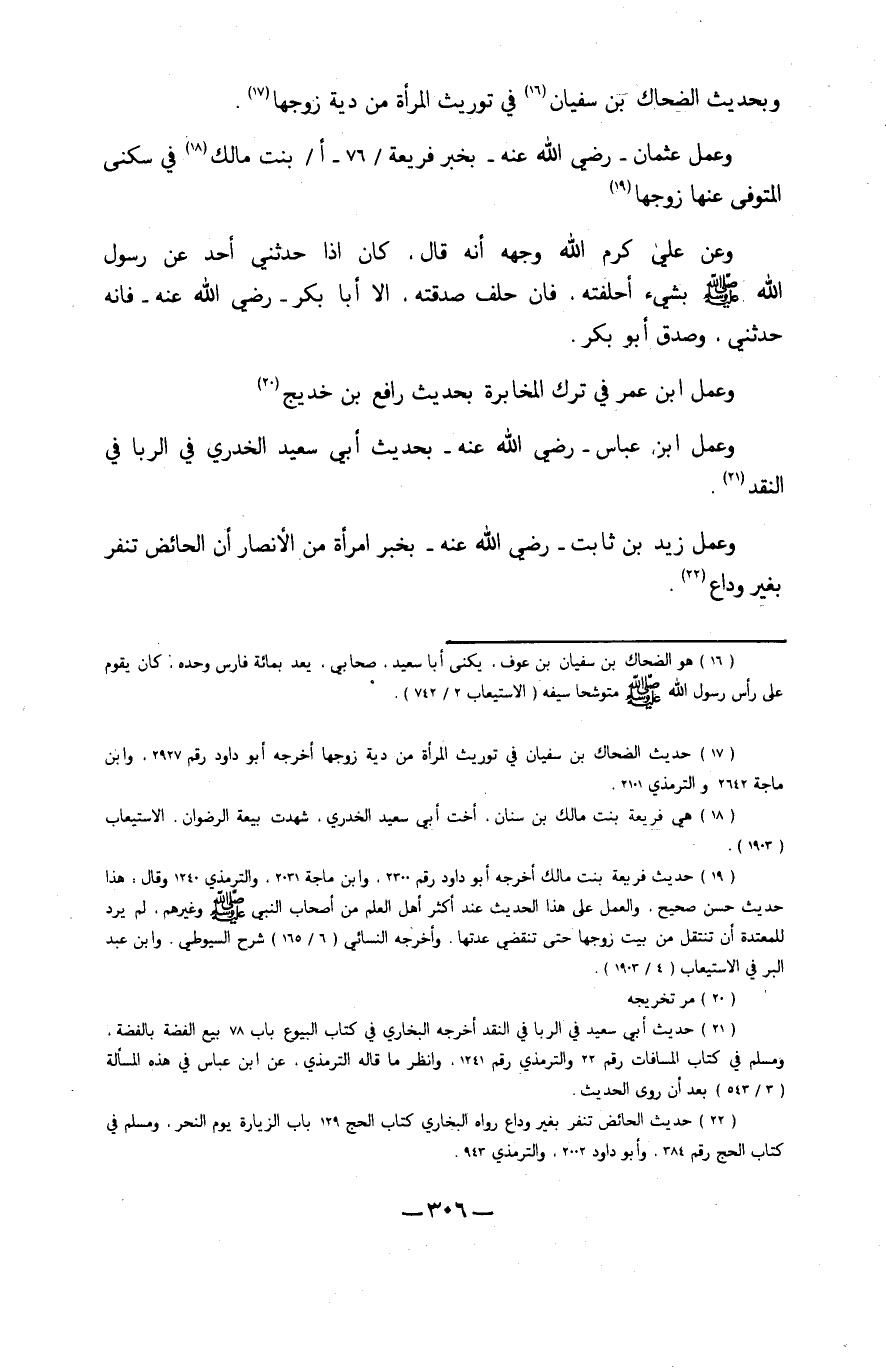 وبحديث الضحاك بن سفيان (١٦) في توريث المرأة من دية زوجها (١٧) .
وعمل عثمان ـ رضي الله عنه ـ بخبر فريعة / ٧٦ ـ أ / بنت مالك (١٨) في سكنى
المتوفى عنها زوجها (١٩)
وعن علي كرم الله وجهه أنه قال ، كان اذا حدثني أحد عن رسول
الله ﷺ بشيء أحلفته ، فان حلف صدقته ، الا أبا بكر ـ رضي الله عنه ـ فانه
حدثني ، وصدق أبو بكر .
وعمل ابن عمر في ترك المخابرة بحديث رافع بن خديج (٢٠)
وعمل ابن عباس ـ رضي الله عنه ـ بحديث أبي سعيد الخدري في الربا في
النقد (٢١) .
وعمل زيد بن ثابت ـ رضي الله عنه ـ بخبر امرأة من الأنصار أن الحائض تنفر
بغير وداع (٢٢) .
( ١٦ ) هو الضحاك بن سفيان بن عوف ، يكنى أبا سعيد ، صحابي ، يعد بمائة فارس وحده ، كان يقوم
على رأس رسول الله ﷺ متوشحا سيفه ( الاستيعاب ٢ / ٧٤٢ ) .
( ١٧ ) حديث الضحاك بن سفيان في توريث المرأة من دية زوجها أخرجه أبو داود رقم ٢٩٢٧ ، وابن
ماجة ٢٦٤٢ و الترمذي ٢١٠١ .
( ١٨ ) هي فريعة بنت مالك بن سنان ، أخت أبي سعيد الخدري ، شهدت بيعة الرضوان . الاستيعاب
( ١٩٠٣ ) .
( ١٩ ) حديث فريعة بنت مالك أخرجه أبو داود رقم ٢٣٠٠ ، وابن ماجة ٢٠٣١ ، والترمذي ١٢٤٠ وقال : هذا
حديث حسن صحيح ، والعمل على هذا الحديث عند أكثر أهل العلم من أصحاب النبي ﷺ وغيرهم ، لم يرد
للمعتدة أن تنتقل من بيت زوجها حتى تنقضي عدتها . وأخرجه النسائي ( ٦ / ١٦٥ ) شرح السيوطي . وابن عبد
البر في الاستيعاب ( ٤ / ١٩٠٣ ) .
( ٢٠ ) مر تخريجه
( ٢١ ) حديث أبي سعيد في الربا في النقد أخرجه البخاري في كتاب البيوع باب ٧٨ بيع الفضة بالفضة ،
ومسلم في كتاب المسافات رقم ٢٢ والترمذي رقم ١٢٤١ ، وانظر ما قاله الترمذي ، عن ابن عباس في هذه المسألة
( ٣ / ٥٤٣ ) بعد أن روى الحديث .
( ٢٢ ) حديث الحائض تنفر بغير وداع رواه البخاري كتاب الحج ١٢٩ باب الزيارة يوم النحر ، ومسلم في
كتاب الحج رقم ٣٨٤ ، وأبو داود ٢٠٠٢ ، والترمذي ٩٤٣ .
— ٣٠٦ —